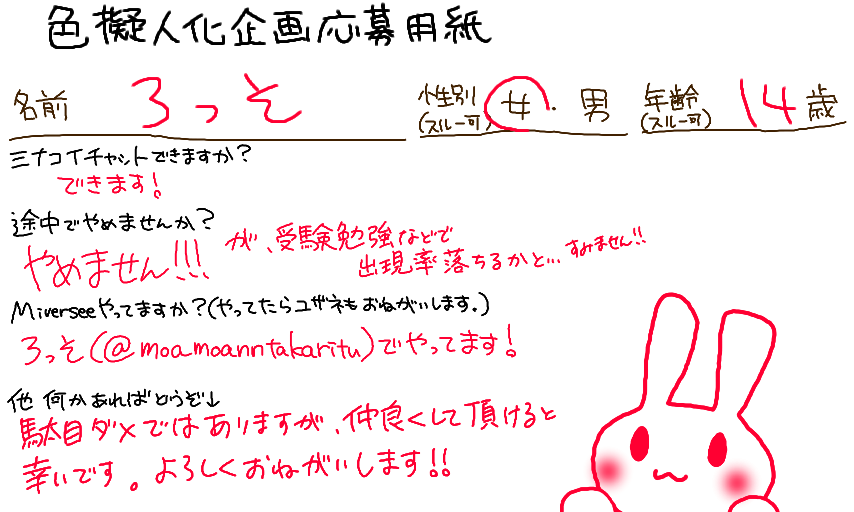 色擬人化企画応募用紙
名前 ろっそ 性別(スルー可) 女・男 年齢(スルー可) 14歳
ミナコイチャットできますか?
できます!
途中でやめませんか?
やめません!!! が、受験勉強などで
出現率落ちるかと... すみません!!
Miverseeやってますか?(やってたらユザネもおねがいします.)
ろっそ(@moamoanntakaritu)でやってます!
他 何かあればどうぞ↓
駄目ダメではありますが、仲良くして頂けると
幸いです。よろしくおねがいします!!